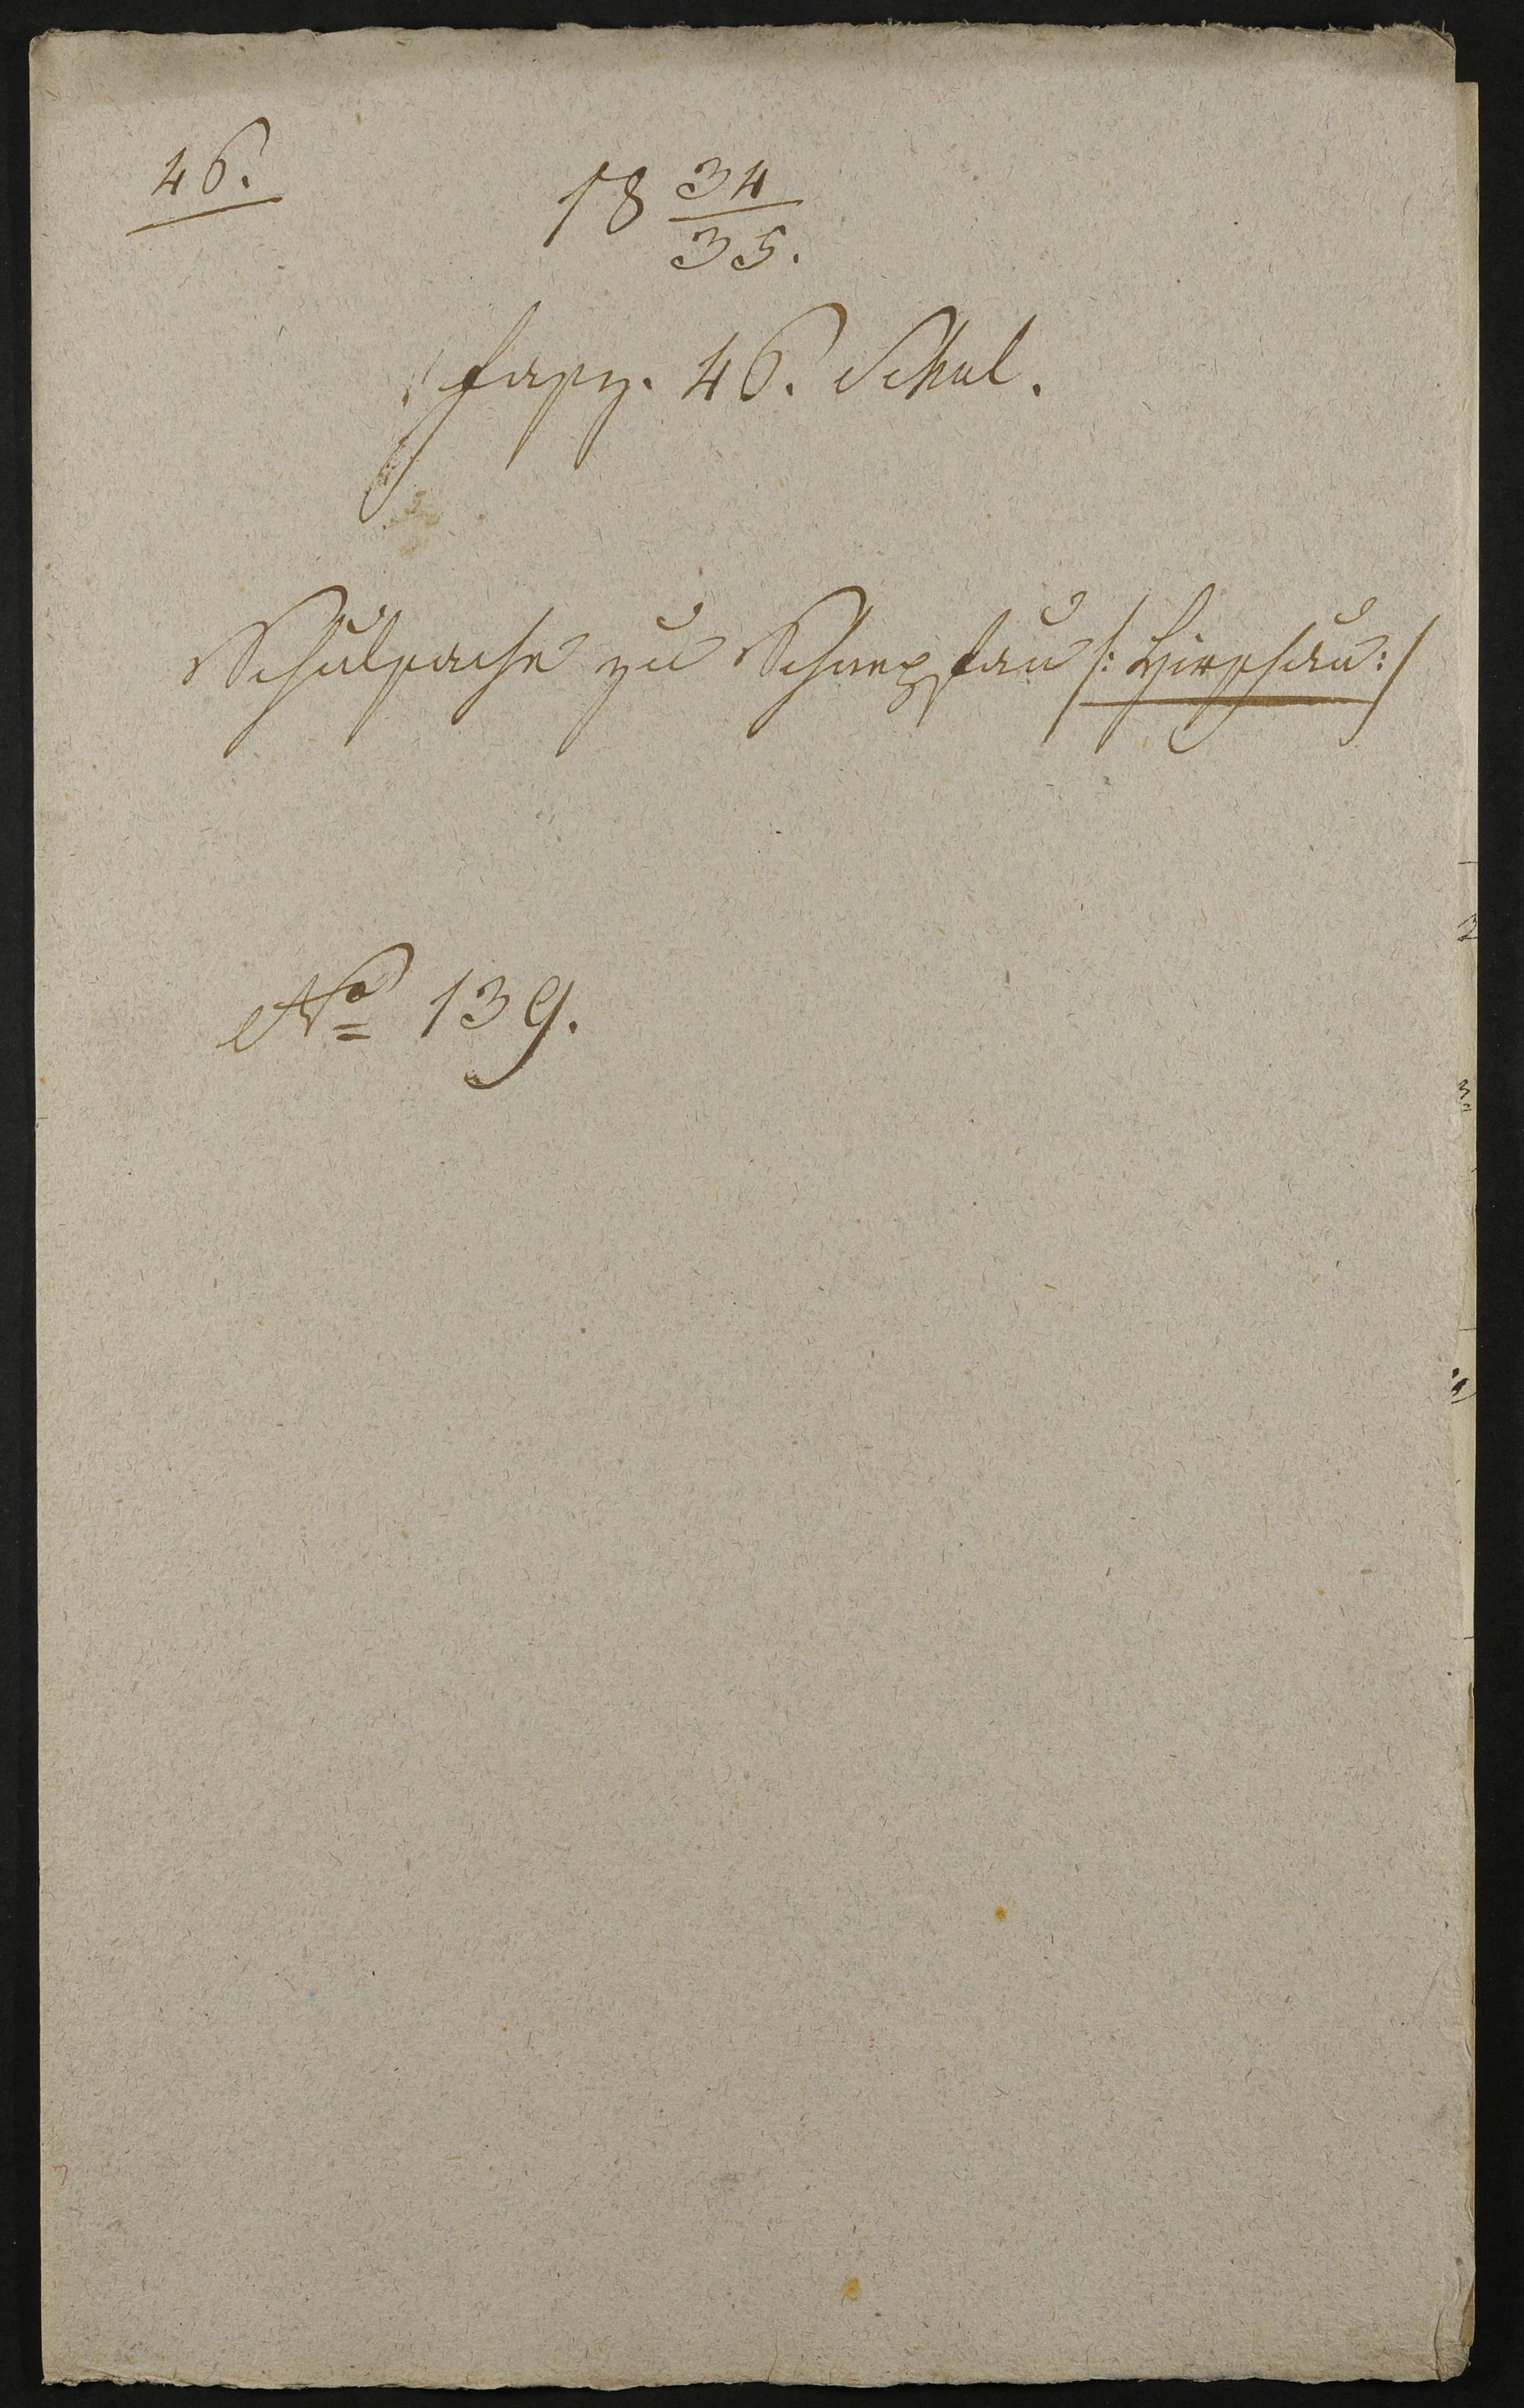 46.
18 34/35.
Fasz. 46. Schul.
Schulsache zu Schnepfau /: Hirschau :/
No 139.